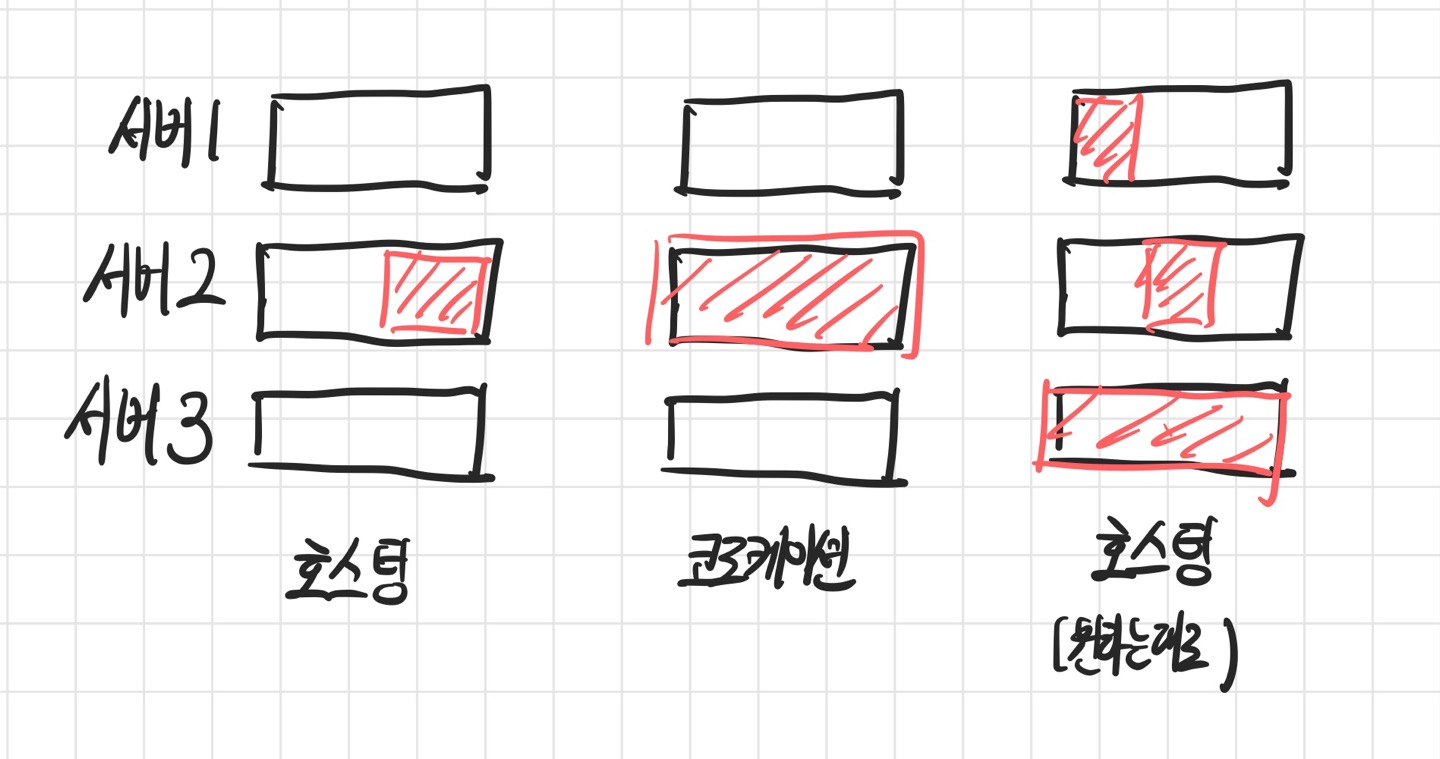 서버1
서버2
서버3
호스팅
코로케이션
호스팅
(원하는대로)